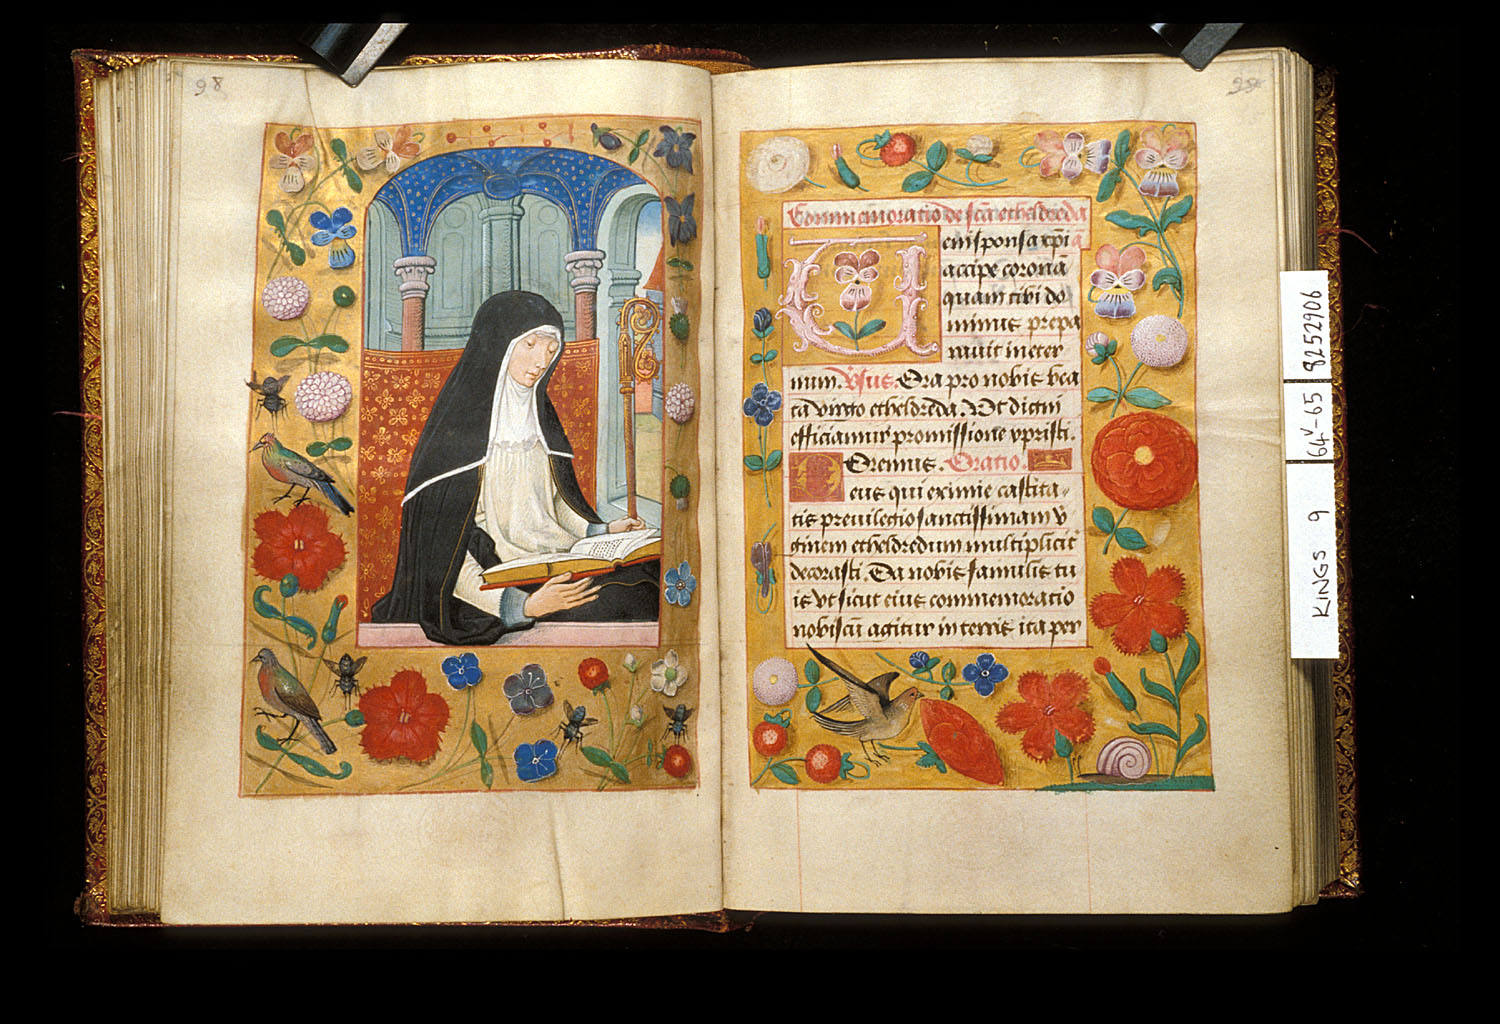 98
Commemoratio de scā etheldreda
Ueni sponsa xp̄i
accipe coronā
quam tibi do
minus prepa
rauit in eter
num. v̄sus. Ora pro nobis bea
ta virgo etheldreda. Vt digni
efficiamur promissione xpristi.
Oremus. Oratio.
Deus qui eximie castita-
tis preuilegio sanctissimam v̄
ginem etheldredum multipliciť
decorasti. Da nobis famulis tu
is vt sicut eius commemoratio
nobiscū agitur in terris ita per
8252906
64v-65
KINGS 9